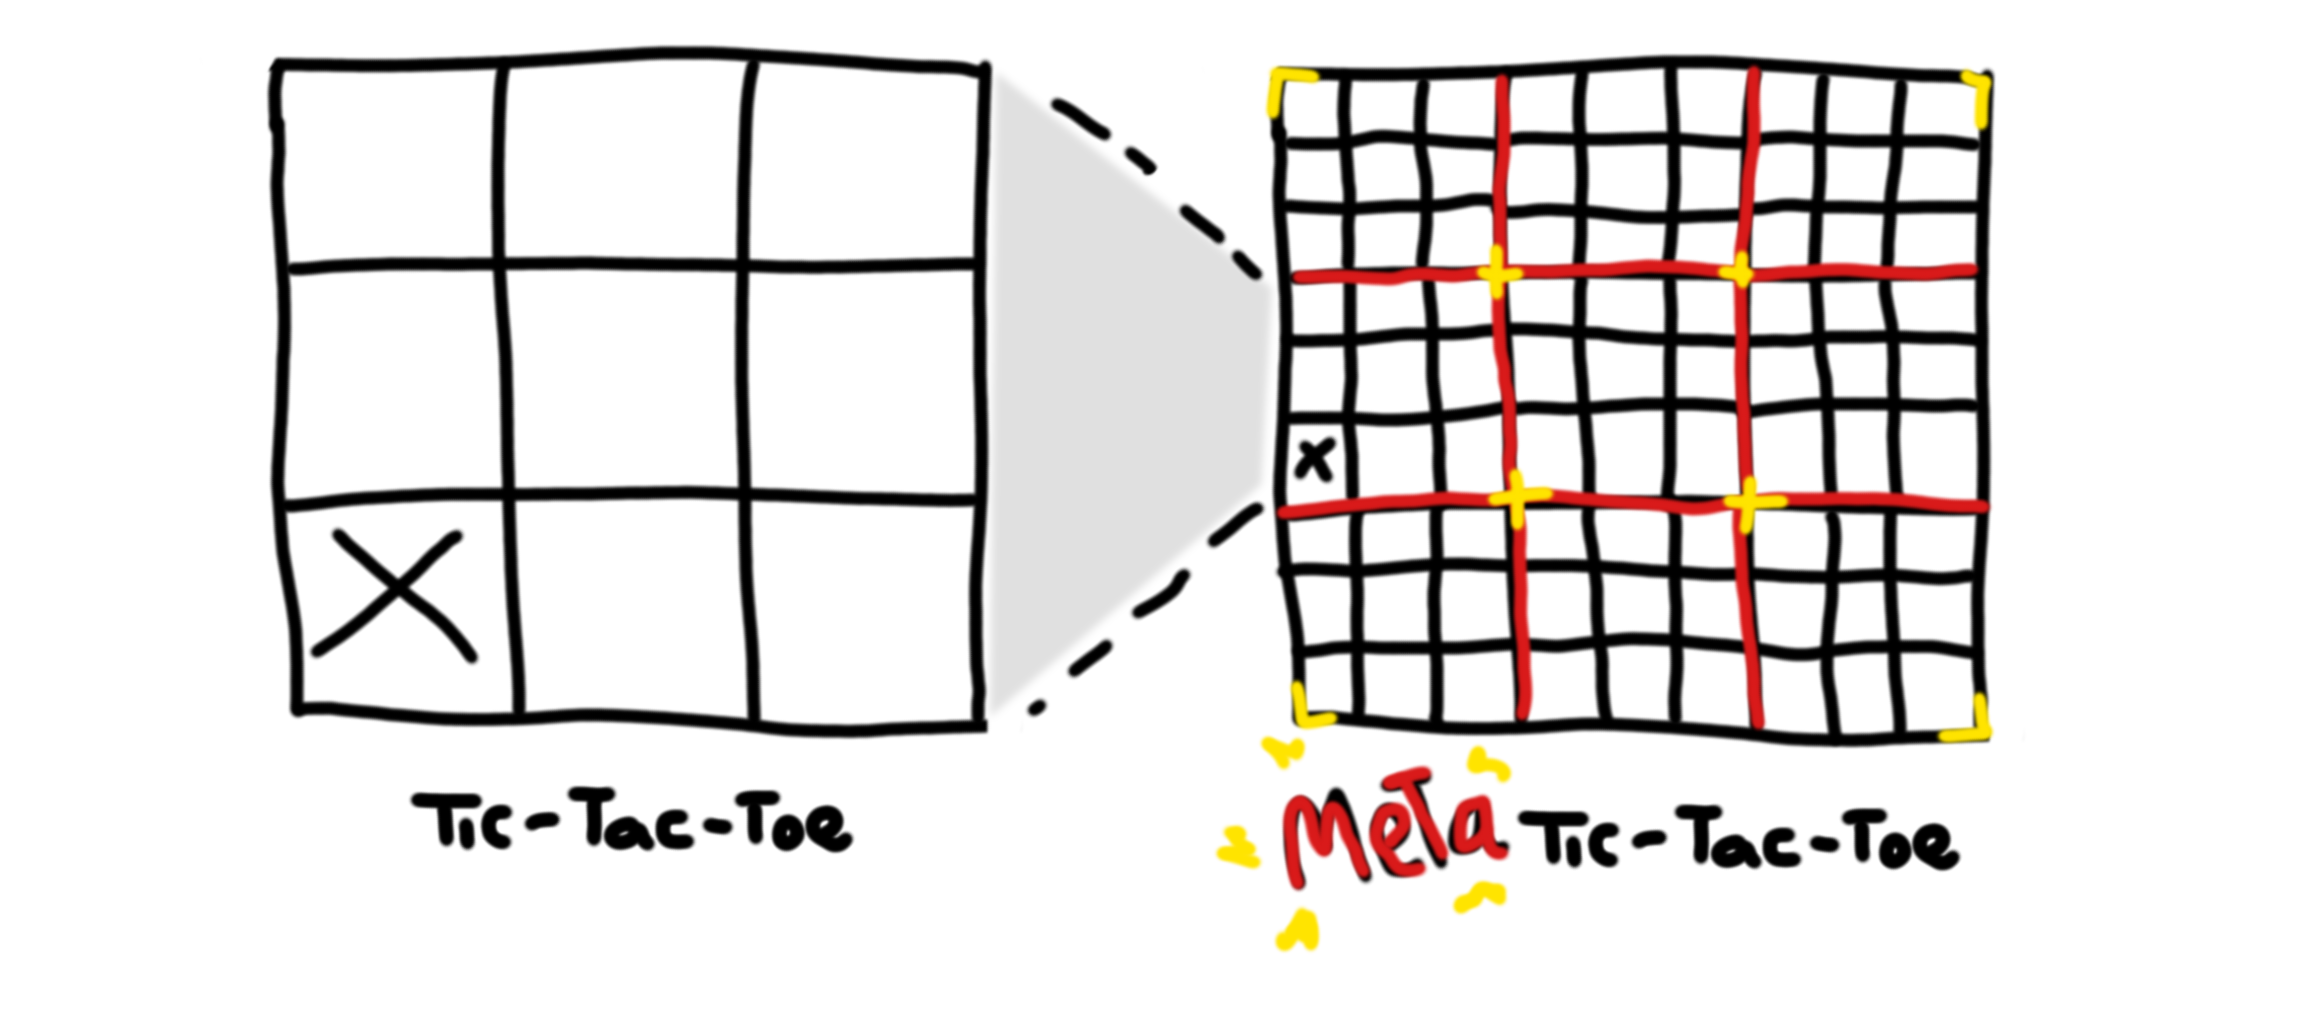 X
x
Tic-Tac-Toe
MeTa Tic-Tac-Toe